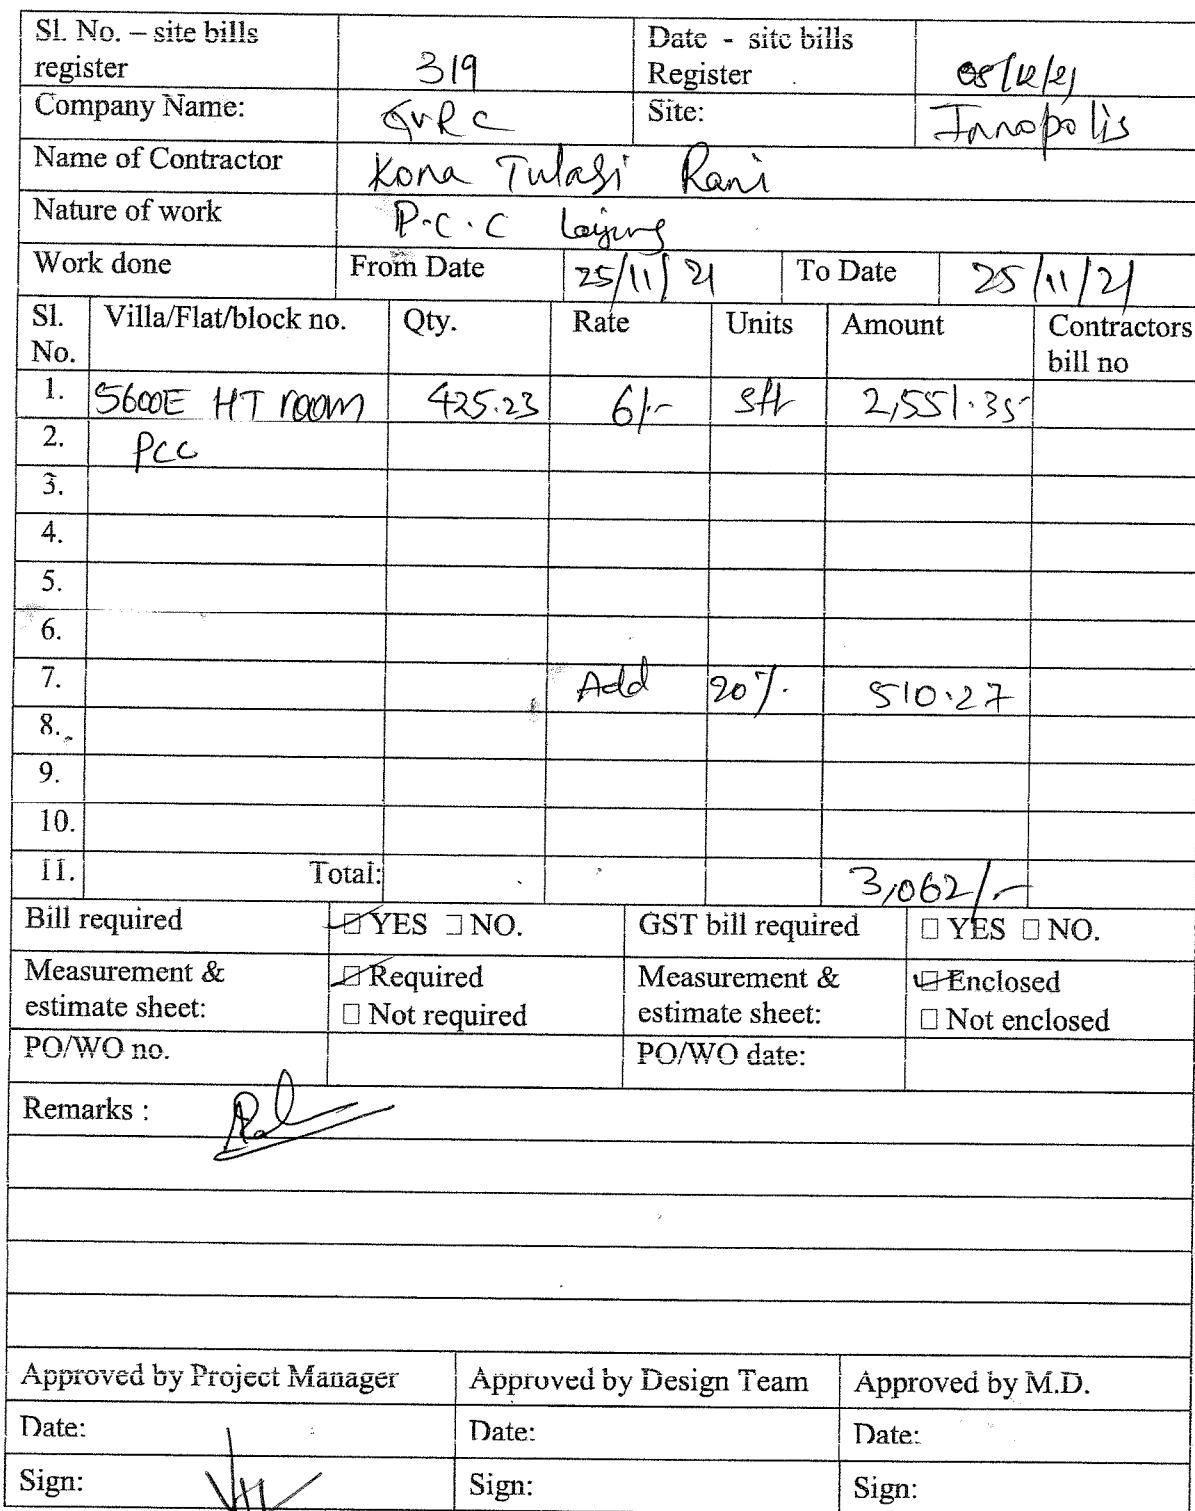 Sl. No. – site bills register 319 Date - site bills Register 08/12/21
Company Name: GVRC Site: Innopolis
Name of Contractor Kona Tulasi Rani
Nature of work P.C.C laying
Work done From Date 25/11/21 To Date 25/11/21
Sl. No. Villa/Flat/block no. Qty. Rate Units Amount Contractors bill no
1. 5600E HT room 425.23 6/- sft 2,551.35
2. PCC
3.
4.
5.
6.
7. Add 20%. 510.27
8.
9.
10.
11. Total: 3,062/-
Bill required ☑ YES ☐ NO. GST bill required ☐ YES ☐ NO.
Measurement & estimate sheet: ☑ Required ☐ Not required Measurement & estimate sheet: ☑ Enclosed ☐ Not enclosed
PO/WO no. PO/WO date:
Remarks :
Approved by Project Manager Approved by Design Team Approved by M.D.
Date: Date: Date:
Sign: Sign: Sign: